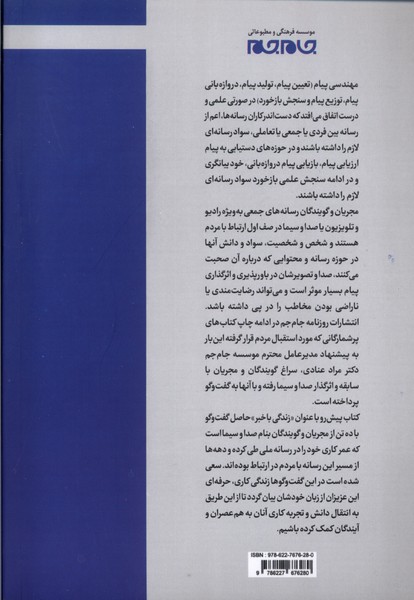 موسسه فرهنگی و مطبوعاتی
جام جم
مهندسی پیام (تعیین پیام، تولید پیام، دروازه‌بانی
پیام، توزیع پیام و سنجش بازخورد) در صورتی علمی و
درست اتفاق می‌افتد که دست‌اندرکاران رسانه‌ها، اعم از
رسانه بین فردی یا جمعی یا تعاملی، سواد رسانه‌ای
لازم را داشته باشند و در حوزه‌های دستیابی به پیام
ارزیابی پیام، بازیابی پیام دروازه‌بانی، خود بیانگری
و در ادامه سنجش علمی بازخورد سواد رسانه‌ای
لازم را داشته باشند.
مجریان و گویندگان رسانه‌های جمعی به‌ویژه رادیو
و تلویزیون یا صدا و سیما در صف اول ارتباط با مردم
هستند و شخص و شخصیت، سواد و دانش آنها
در حوزه رسانه و محتوایی که درباره آن صحبت
می‌کنند، صدا و تصویرشان در باورپذیری و اثرگذاری
پیام بسیار موثر است و می‌تواند رضایت‌مندی یا
ناراضی بودن مخاطب را در پی داشته باشد.
انتشارات روزنامه جام‌جم در ادامه چاپ کتاب‌های
پرشمارگانی که مورد استقبال مردم قرار گرفته این بار
به پیشنهاد مدیرعامل محترم موسسه جام‌جم
دکتر مراد عنادی، سراغ گویندگان و مجریان با
سابقه و اثرگذار صدا و سیما رفته و با آنها به گفت‌وگو
پرداخته است.
کتاب پیش‌رو با عنوان «زندگی با خبر» حاصل گفت‌وگو
با ده تن از مجریان و گویندگان بنام صدا و سیما است
که عمر کاری خود را در رسانه ملی طی کرده و دهه‌ها
از مسیر این رسانه با مردم در ارتباط بوده‌اند. سعی
شده است در این گفت‌وگوها زندگی کاری، حرفه‌ای
این عزیزان از زبان خودشان بیان گردد تا از این طریق
به انتقال دانش و تجربه کاری آنان به هم‌عصران و
آیندگان کمک کرده باشیم.
ISBN: 978-622-7676-28-0
9 786227 676280